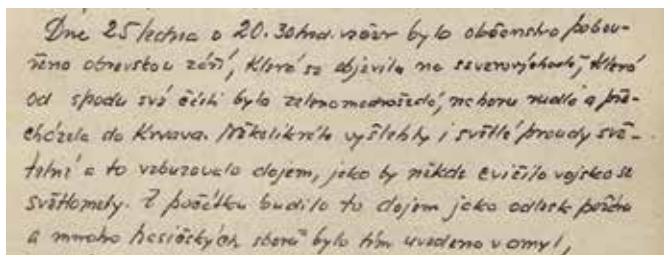 Dne 25 ledna o 20.30 hod. večer bylo občanstvo pobou-
řeno obrovskou září, která se objevila na severovýchodě, která
od spodu své části byla zelenomodrošedá, nahoru rudlá a pře-
cházela do krvava. Několikráte vyšlehly i světlé proudy svě-
telné a to vzbuzovalo dojem, jako by někde cvičilo vojsko se
světlomety. Z počátku budilo to dojem jako odlesk požáru
a mnoho hasičských sborů bylo tím uvedeno v omyl,